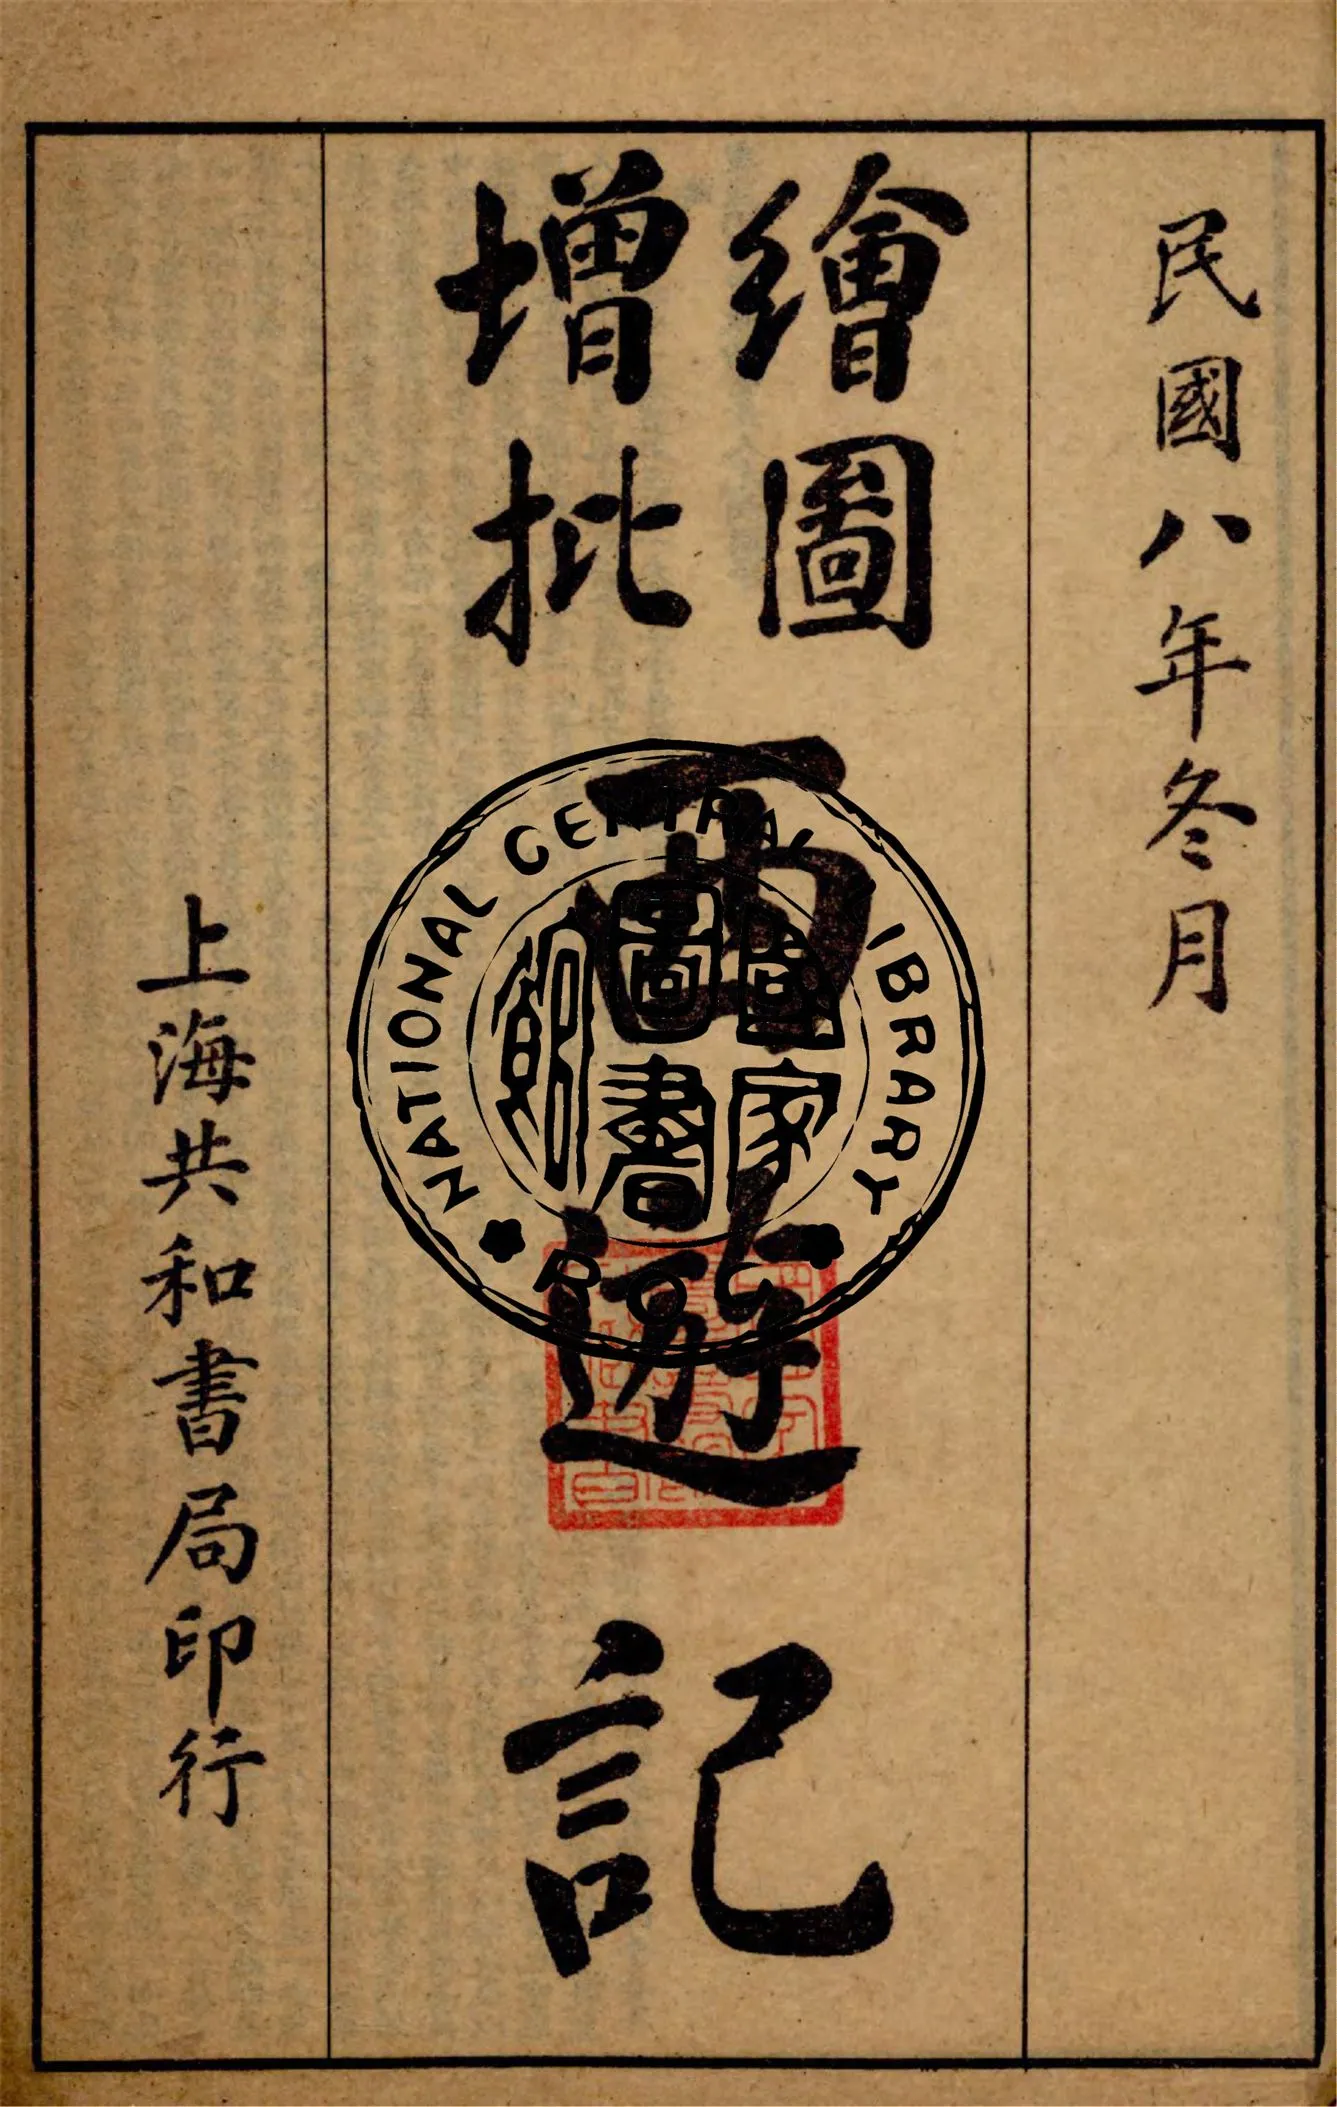 民國八年冬月
繪圖
增批
西遊記
上海共和書局印行
NATIONAL CENTRAL LIBRARY
國家
圖書
館
R.O.C.